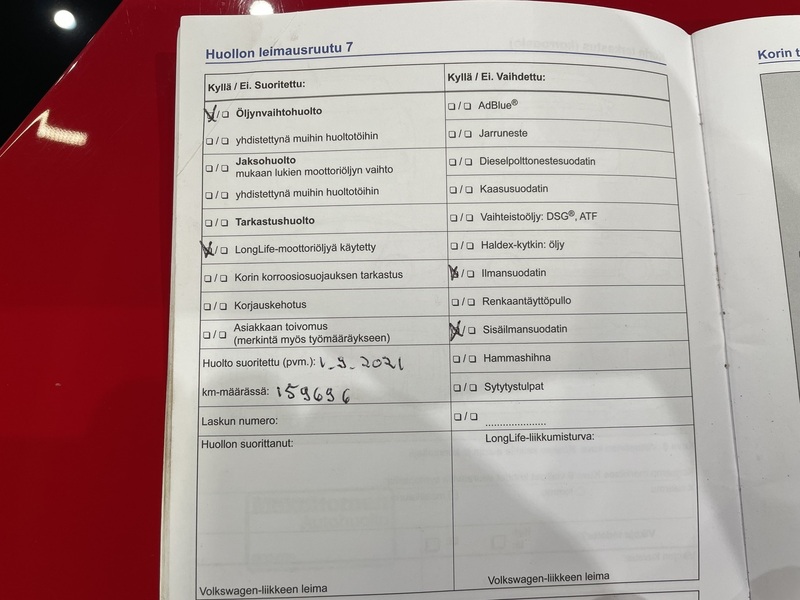 Huollon leimausruutu 7
Kyllä / Ei. Suoritettu:
❏/❏ Öljynvaihtohuolto
❏/❏ yhdistettynä muihin huoltotöihin
❏/❏ Jaksohuolto
mukaan lukien moottoriöljyn vaihto
❏/❏ yhdistettynä muihin huoltotöihin
❏/❏ Tarkastushuolto
❏/❏ LongLife-moottoriöljyä käytetty
❏/❏ Korin korroosiosuojauksen tarkastus
❏/❏ Korjauskehotus
❏/❏ Asiakkaan toivomus
(merkintä myös työmääräykseen)
Huolto suoritettu (pvm.): 1.9.2021
km-määrässä: 159696
Laskun numero:
Huollon suorittanut:
Volkswagen-liikkeen leima
Kyllä / Ei. Vaihdettu:
❏/❏ AdBlue®
❏/❏ Jarruneste
❏/❏ Dieselpolttonestesuodatin
❏/❏ Kaasusuodatin
❏/❏ Vaihteistoöljy: DSG®, ATF
❏/❏ Haldex-kytkin: öljy
❏/❏ Ilmansuodatin
❏/❏ Renkaantäyttöpullo
❏/❏ Sisäilmansuodatin
❏/❏ Hammashihna
❏/❏ Sytytystulpat
❏/❏ .....................
LongLife-liikkumisturva:
Volkswagen-liikkeen leima
Korin t